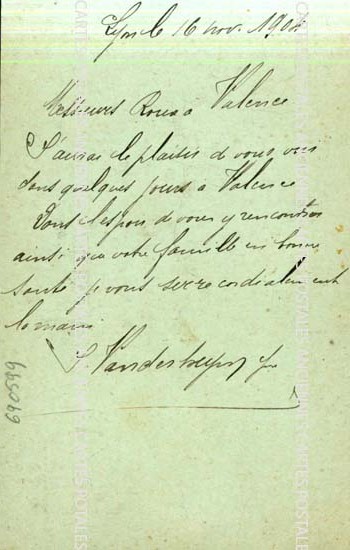 Lyon le 16 nov. 1904
Messieurs Roux à Valence
J'aurai le plaisir de vous voir
dans quelques jours à Valence
Dans l'espoir de vous y rencontrer
ainsi que votre famille en bonne
santé je vous serre cordialement
la main
Vanderheym
690589
CARTES POSTALES